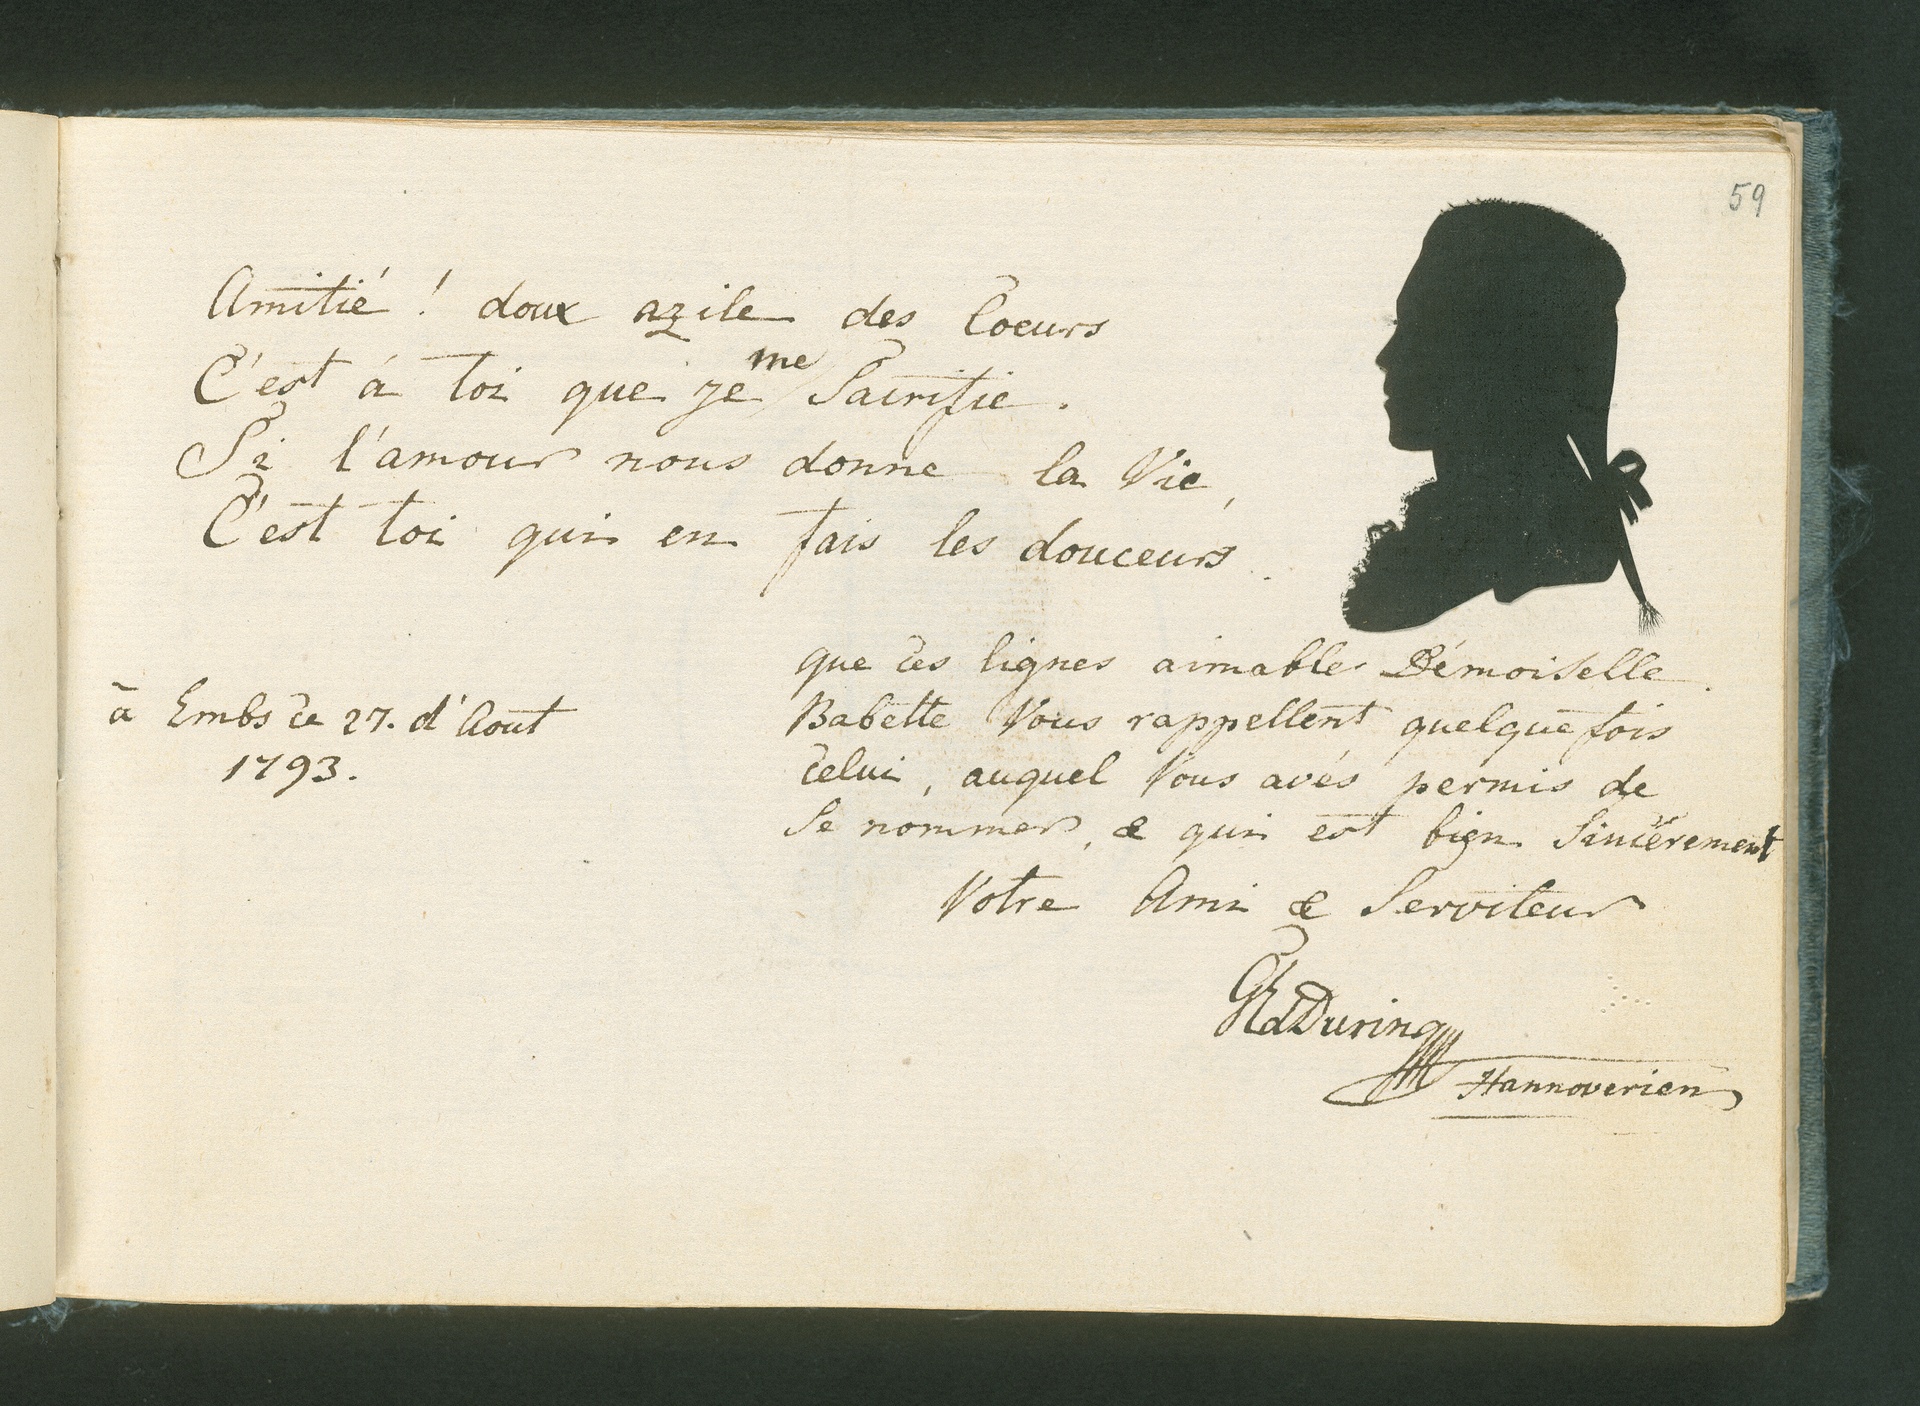 59
Amitié ! doux azile des Coeurs
C'est à toi que je me Sacrifie.
Si l'amour nous donne la Vie,
C'est toi qui en fais les douceurs.
à Embs ce 27. d'Aout
1793.
que ces lignes aimable Démoiselle
Babette Vous rappellent quelque fois
celui, auquel Vous avés permis de
Se nommer, & qui est bien Sincérement
Votre Ami & Serviteur
During
Hannoverien